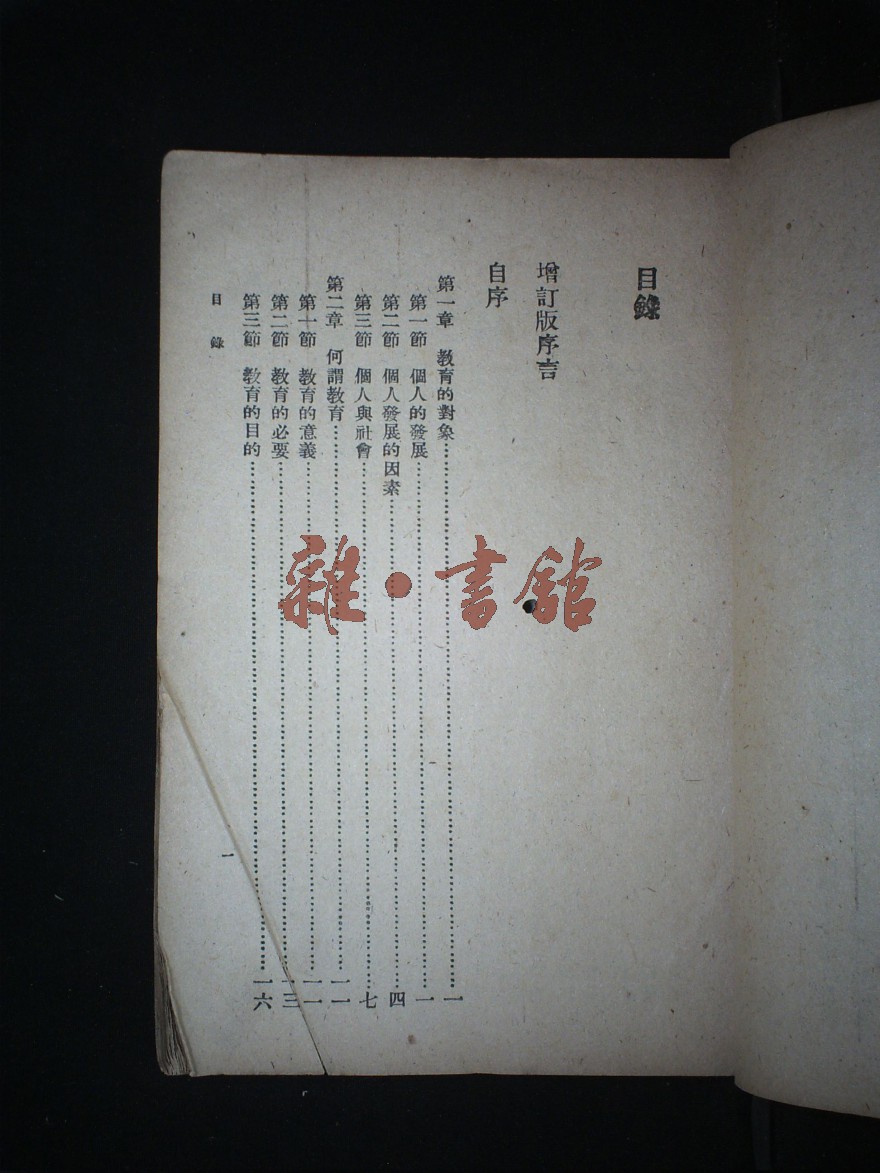 目錄
增訂版序言
自序
第一章 教育的對象……一
第一節 個人的發展……一
第二節 個人發展的因素……四
第三節 個人與社會……七
第二章 何謂教育……一一
第一節 教育的意義……一一
第二節 教育的必要……一三
第三節 教育的目的……一六
目錄 一
雜·書館